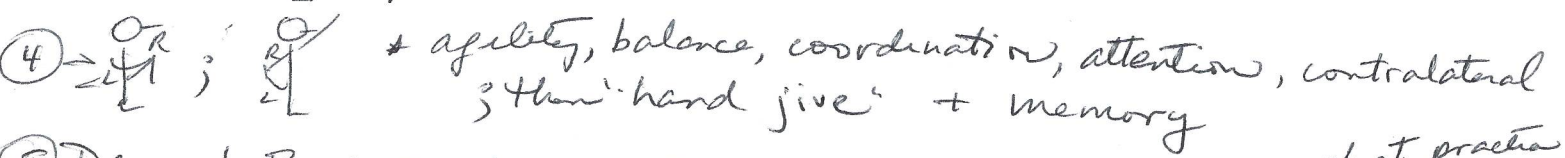 ④ → R L ; R L * agility, balance, coordination, attention, contralateral
; then "hand jive" + memory
practice